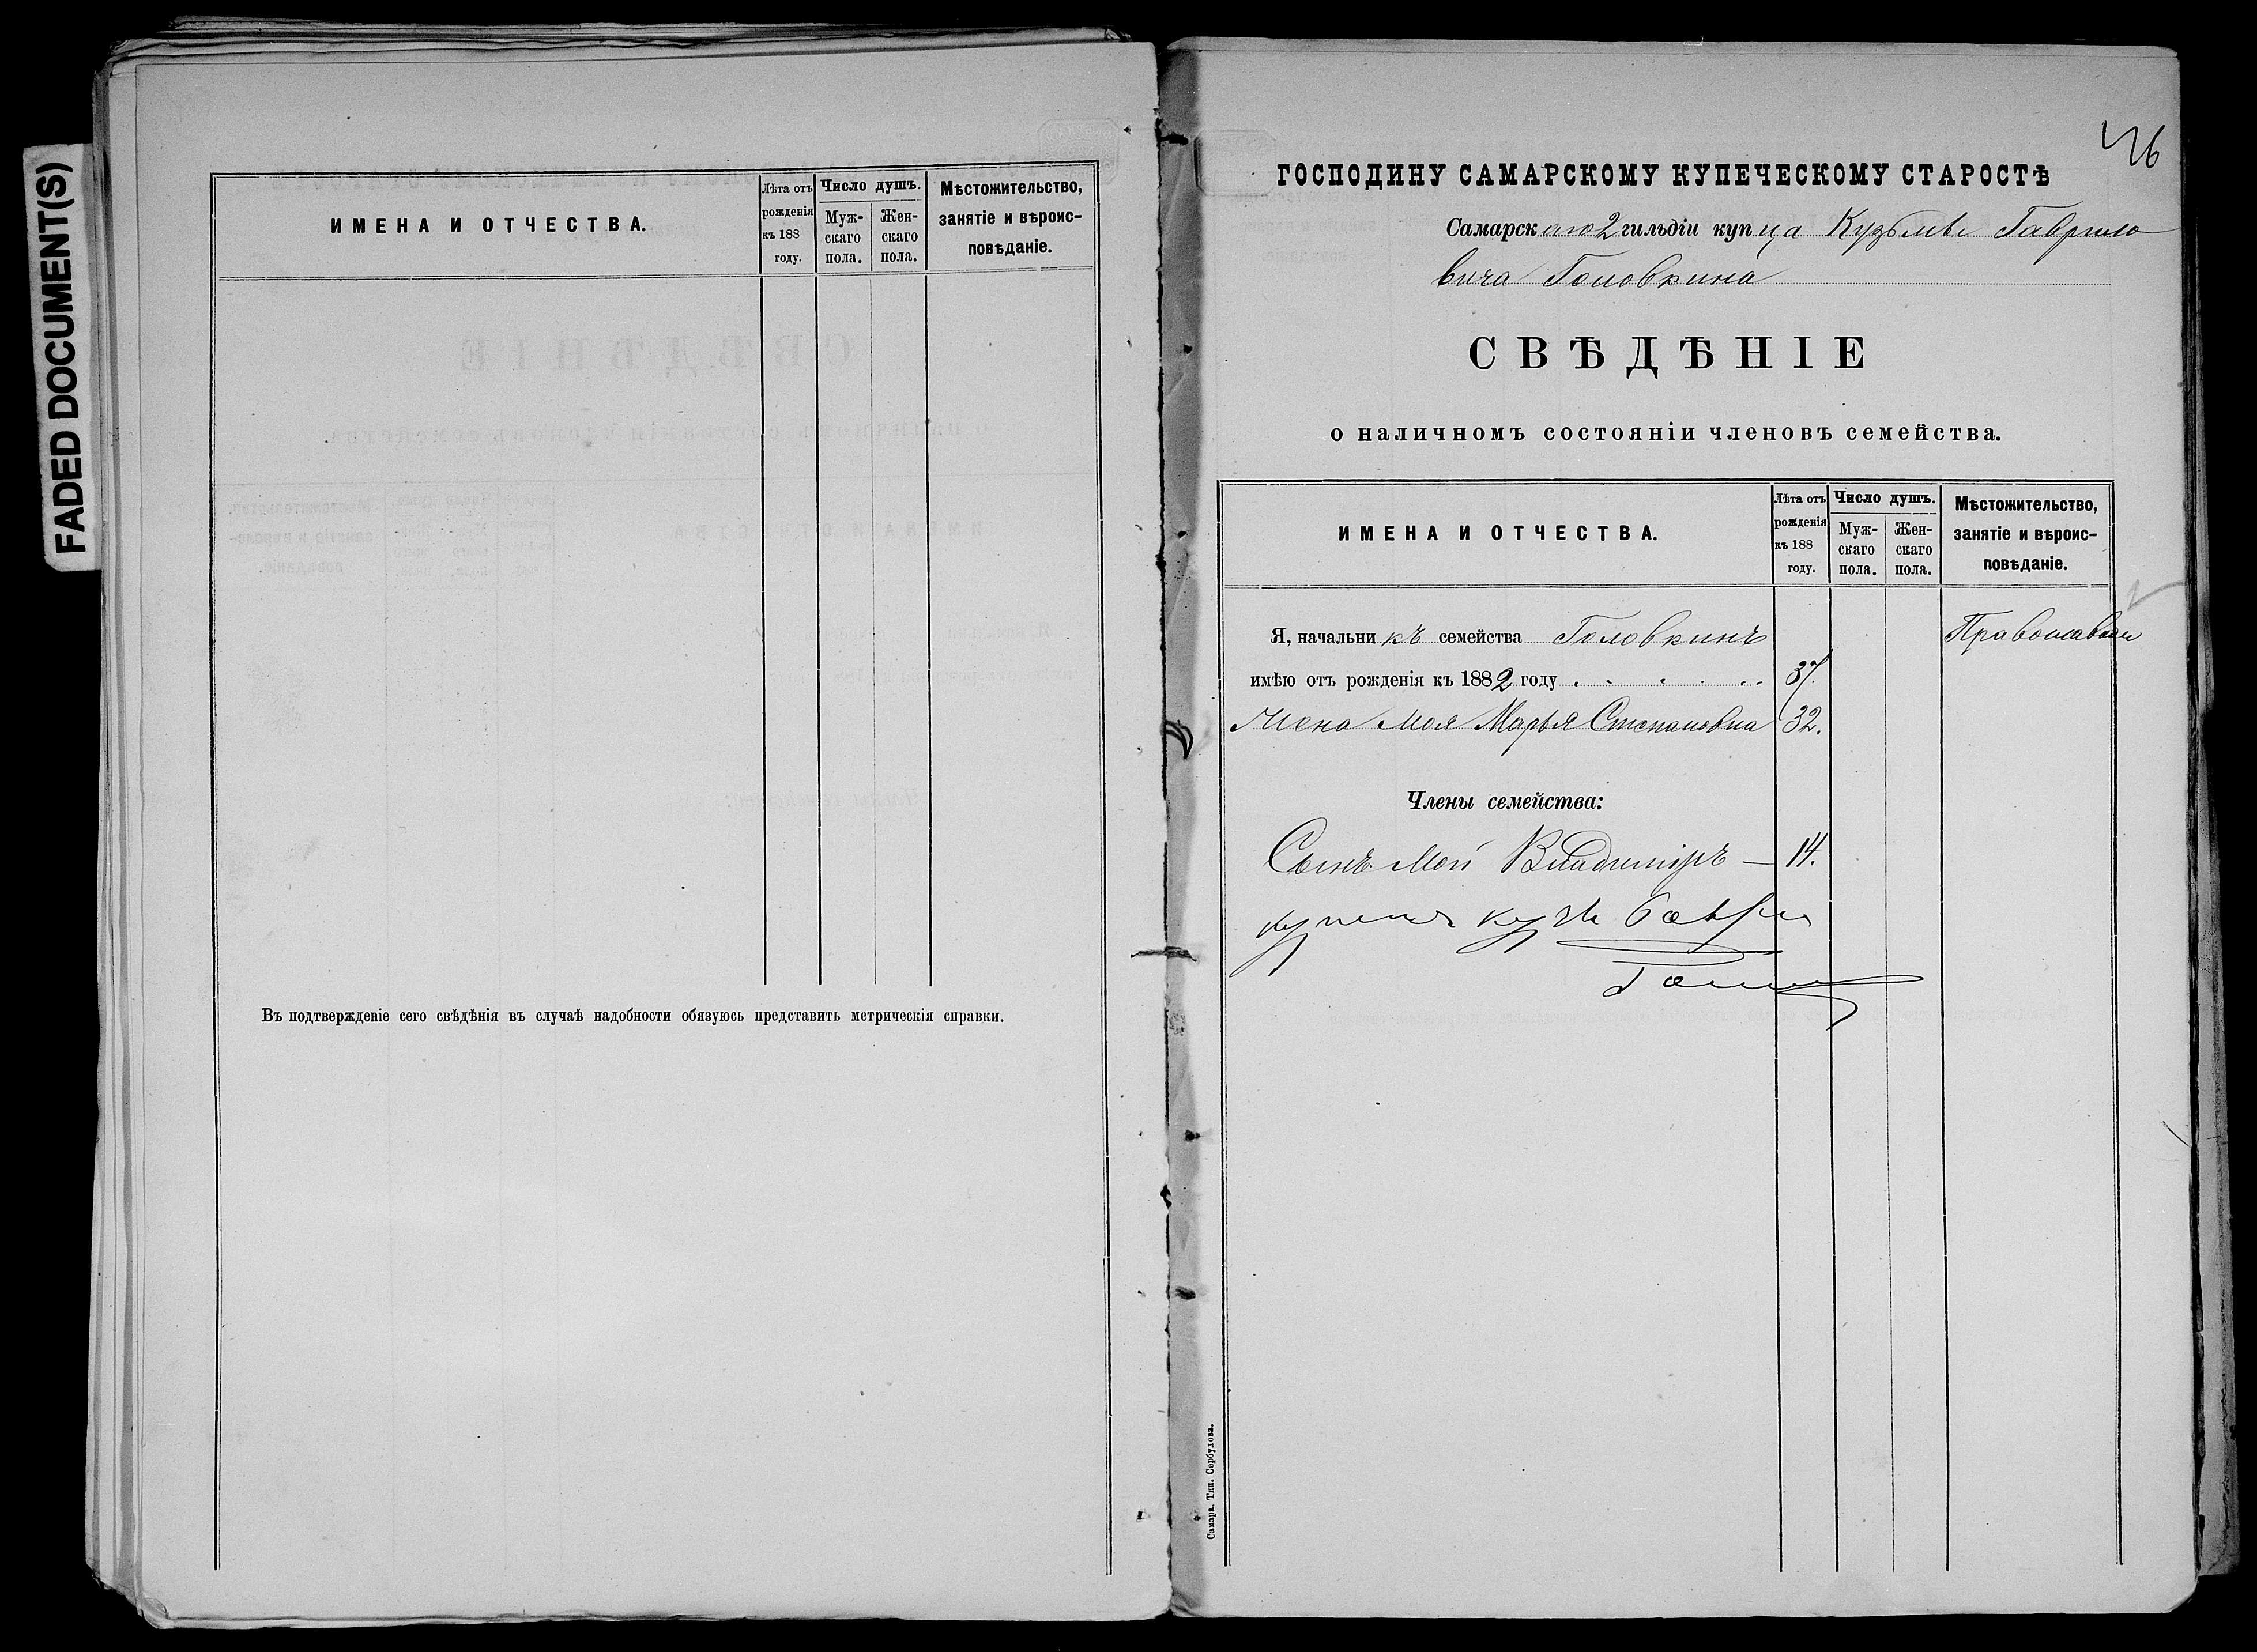 FADED DOCUMENT(S)
ИМЕНА И ОТЧЕСТВА.
Лѣта отъ рожденія къ 188 году.
Число душъ.
Мужскаго пола.
Женскаго пола.
Мѣстожительство, занятіе и вѣроисповѣданіе.
Въ подтвержденіе сего свѣдѣнія въ случаѣ надобности обязуюсь представить метрическія справки.
46
ГОСПОДИНУ САМАРСКОМУ КУПЕЧЕСКОМУ СТАРОСТѢ
Самарскаго 2 гильдіи купца Кузьмы Гаврило
вича Головкина
СВѢДѢНІЕ
о наличномъ состояніи членовъ семейства.
ИМЕНА И ОТЧЕСТВА.
Лѣта отъ рожденія къ 188 году.
Число душъ.
Мужскаго пола.
Женскаго пола.
Мѣстожительство, занятіе и вѣроисповѣданіе.
Я, начальникъ семейства Головкинъ
имѣю отъ рожденія къ 1882 году 37.
Жена моя Марья Степановна 32.
Члены семейства:
Сынъ мой Владиміръ — 14.
Самара. Тип. Сербулова.